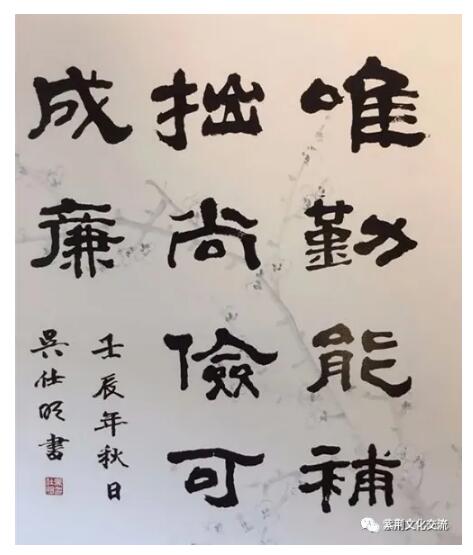 唯勤能補
拙尚儉可
成廉
壬辰年秋日
吴仕明書
紫荆文化交流